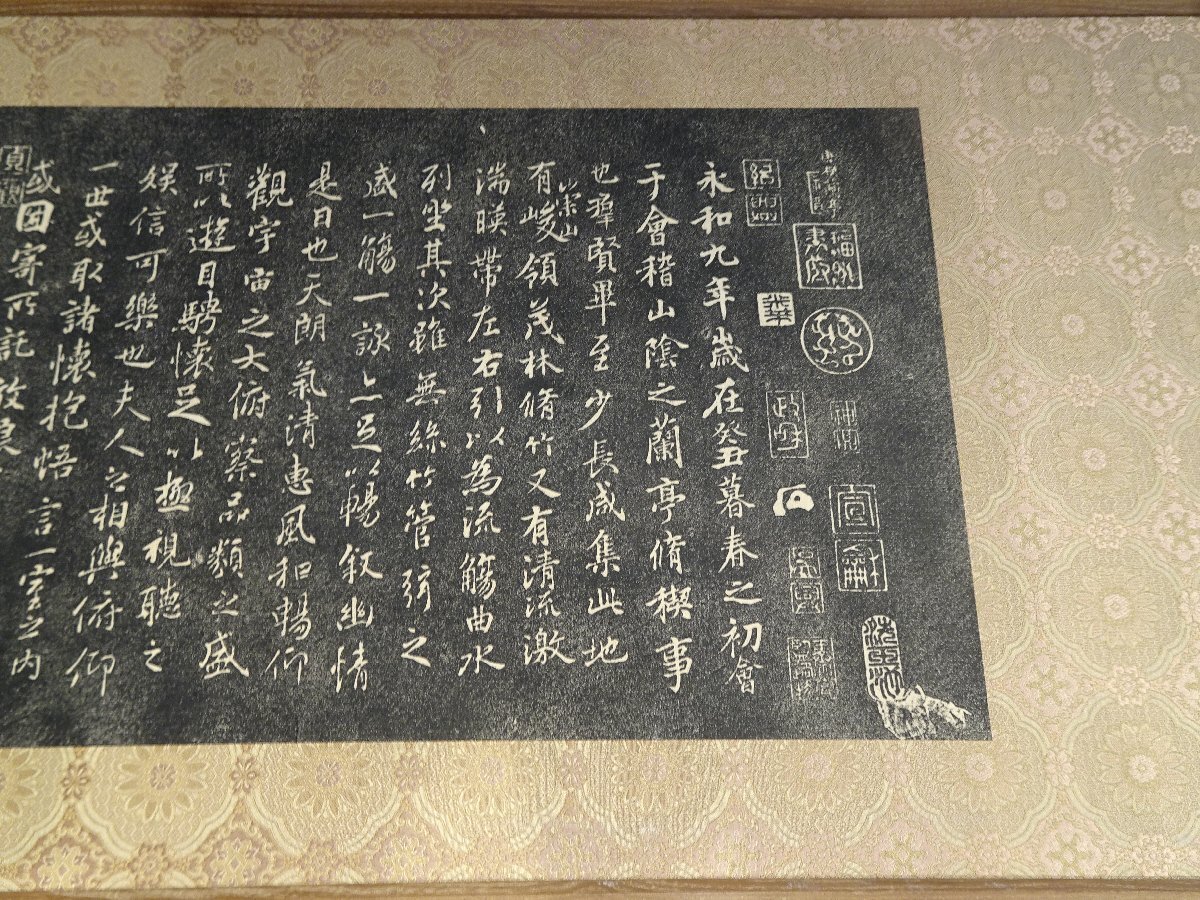 永和九年歲在癸丑暮春之初會
于會稽山陰之蘭亭脩稧事
也羣賢畢至少長咸集此地
有崇山峻領茂林脩竹又有清流激
湍暎帶左右引以為流觴曲水
列坐其次雖無絲竹管弦之
盛一觴一詠亦足以暢敘幽情
是日也天朗氣清惠風和暢仰
觀宇宙之大俯察品類之盛
所以遊目騁懷足以極視聽之
娛信可樂也夫人之相與俯仰
一世或取諸懷抱悟言一室之內
或因寄所託放浪